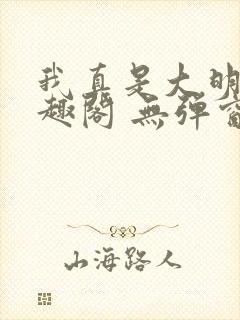 我真是大明
趣阁 無弹窗
山海路人